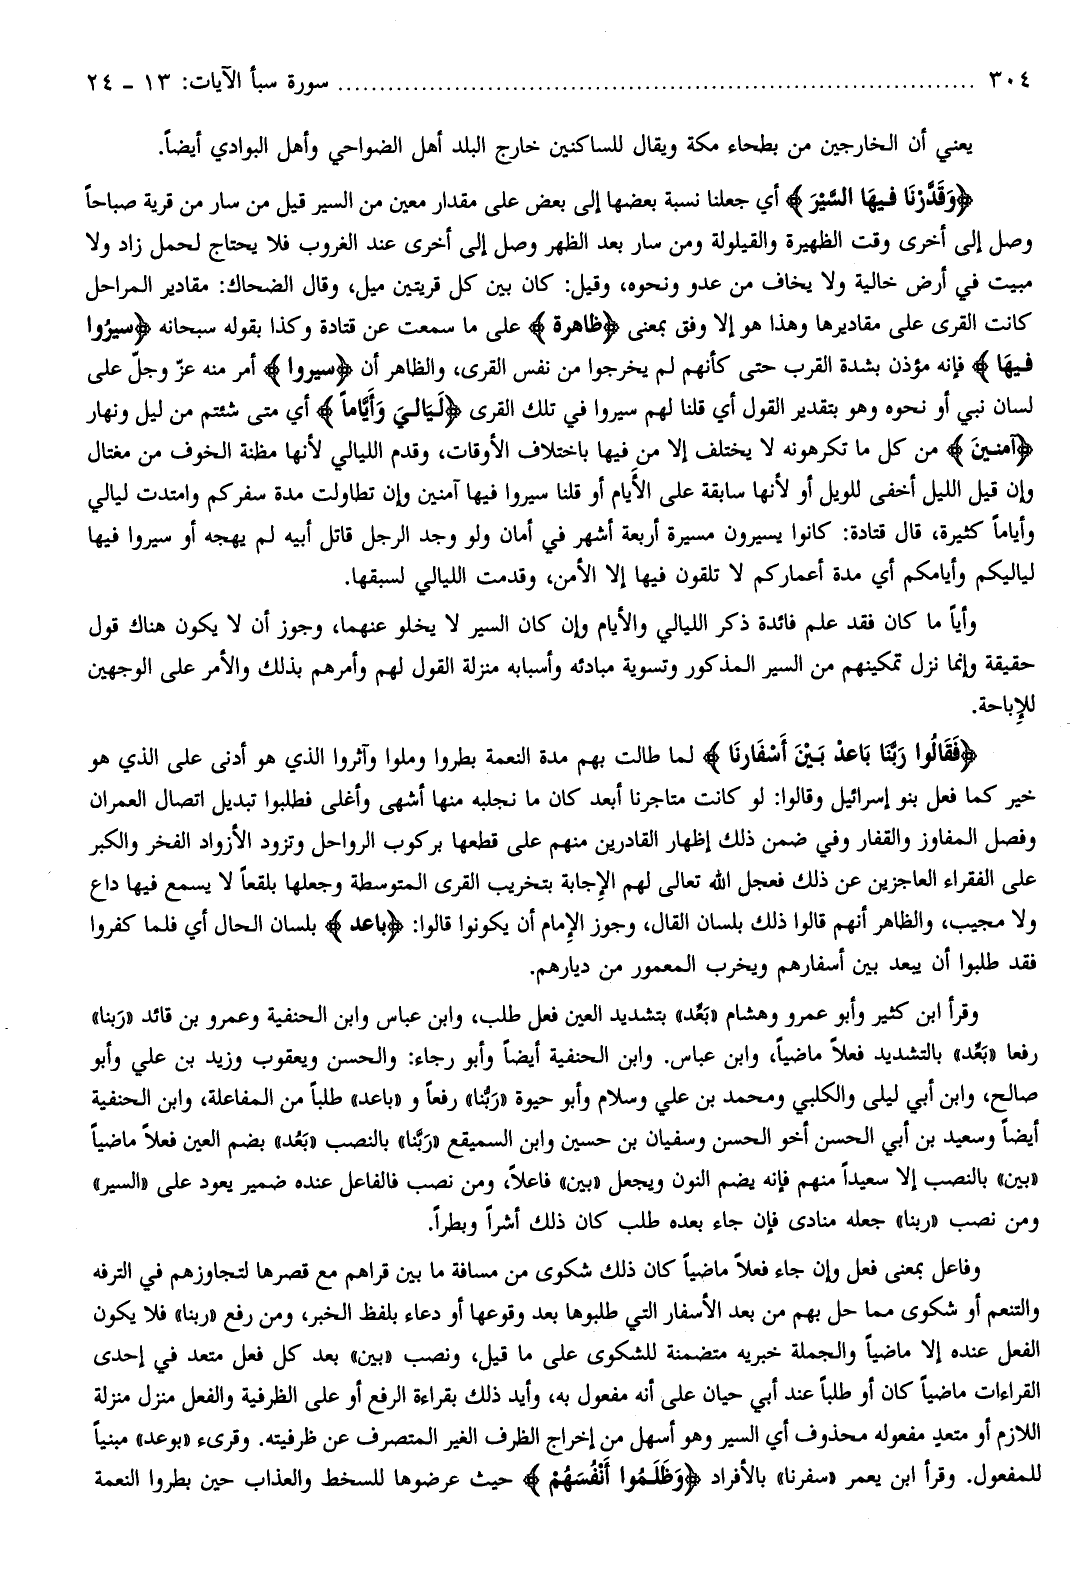 ٣٠٤ ........................................................................ سورة سبأ الآيات: ١٣ - ٢٤
يعني أن الخارجين من بطحاء مكة ويقال للساكنين خارج البلد أهل الضواحي وأهل البوادي أيضاً.
﴿وَقَدَّرْنَا فيهَا السَّيْرَ﴾ أي جعلنا نسبة بعضها إلى بعض على مقدار معين من السير قيل من سار من قرية صباحاً
وصل إلى أخرى وقت الظهيرة والقيلولة ومن سار بعد الظهر وصل إلى أخرى عند الغروب فلا يحتاج لحمل زاد ولا
مبيت في أرض خالية ولا يخاف من عدو ونحوه، وقيل: كان بين كل قريتين ميل، وقال الضحاك: مقادير المراحل
كانت القرى على مقاديرها وهذا هو إلا وفق بمعنى ﴿ظاهرة﴾ على ما سمعت عن قتادة وكذا بقوله سبحانه ﴿سيرُوا
فيهَا﴾ فإنه مؤذن بشدة القرب حتى كأنهم لم يخرجوا من نفس القرى، والظاهر أن ﴿سيروا﴾ أمر منه عزّ وجلّ على
لسان نبي أو نحوه وهو بتقدير القول أي قلنا لهم سيروا في تلك القرى ﴿لَيَاليَ وَأَيَّاماً﴾ أي متى شئتم من ليل ونهار
﴿آمنينَ﴾ من كل ما تكرهونه لا يختلف إلا من فيها باختلاف الأوقات، وقدم الليالي لأنها مظنة الخوف من مغتال
وإن قيل الليل أخفى للويل أو لأنها سابقة على الأيام أو قلنا سيروا فيها آمنين وإن تطاولت مدة سفركم وامتدت ليالي
وأياماً كثيرة، قال قتادة: كانوا يسيرون مسيرة أربعة أشهر في أمان ولو وجد الرجل قاتل أبيه لم يهجه أو سيروا فيها
لياليكم وأيامكم أي مدة أعماركم لا تلقون فيها إلا الأمن، وقدمت الليالي لسبقها.
وأياً ما كان فقد علم فائدة ذكر الليالي والأيام وإن كان السير لا يخلو عنهما، وجوز أن لا يكون هناك قول
حقيقة وإنما نزل تمكينهم من السير المذكور وتسوية مبادئه وأسبابه منزلة القول لهم وأمرهم بذلك والأمر على الوجهين
للإباحة.
﴿فَقَالُوا رَبَّنَا بَاعدْ بَيْنَ أَسْفَارنَا﴾ لما طالت بهم مدة النعمة بطروا وملوا وآثروا الذي هو أدنى على الذي هو
خير كما فعل بنو إسرائيل وقالوا: لو كانت متاجرنا أبعد كان ما نجلبه منها أشهى وأغلى فطلبوا تبديل اتصال العمران
وفصل المفاوز والقفار وفي ضمن ذلك إظهار القادرين منهم على قطعها بركوب الرواحل وتزود الأزواد الفخر والكبر
على الفقراء العاجزين عن ذلك فعجل الله تعالى لهم الإجابة بتخريب القرى المتوسطة وجعلها بلقعاً لا يسمع فيها داع
ولا مجيب، والظاهر أنهم قالوا ذلك بلسان القال، وجوز الإمام أن يكونوا قالوا: ﴿باعد﴾ بلسان الحال أي فلما كفروا
فقد طلبوا أن يبعد بين أسفارهم ويخرب المعمور من ديارهم.
وقرأ ابن كثير وأبو عمرو وهشام «بَعِّد» بتشديد العين فعل طلب، وابن عباس وابن الحنفية وعمرو بن قائد «رَبنا»
رفعا «بَعَّد» بالتشديد فعلاً ماضياً، وابن عباس. وابن الحنفية أيضاً وأبو رجاء: والحسن ويعقوب وزيد بن علي وأبو
صالح، وابن أبي ليلى والكلبي ومحمد بن علي وسلام وأبو حيوة «رَبُّنا» رفعاً و «باعد» طلباً من المفاعلة، وابن الحنفية
أيضاً وسعيد بن أبي الحسن أخو الحسن وسفيان بن حسين وابن السميقع «رَبَّنا» بالنصب «بَعُد» بضم العين فعلاً ماضياً
«بين» بالنصب إلا سعيداً منهم فإنه يضم النون ويجعل «بين» فاعلاً، ومن نصب فالفاعل عنده ضمير يعود على «السير»
ومن نصب «ربنا» جعله منادى فإن جاء بعده طلب كان ذلك أشراً وبطراً.
وفاعل بمعنى فعل وإن جاء فعلاً ماضياً كان ذلك شكوى من مسافة ما بين قراهم مع قصرها لتجاوزهم في الترفه
والتنعم أو شكوى مما حل بهم من بعد الأسفار التي طلبوها بعد وقوعها أو دعاء بلفظ الخبر، ومن رفع «ربنا» فلا يكون
الفعل عنده إلا ماضياً والجملة خبريه متضمنة للشكوى على ما قيل، ونصب «بين» بعد كل فعل متعد في إحدى
القراءات ماضياً كان أو طلباً عند أبي حيان على أنه مفعول به، وأيد ذلك بقراءة الرفع أو على الظرفية والفعل منزل منزلة
اللازم أو متعدٍ مفعوله محذوف أي السير وهو أسهل من إخراج الظرف الغير المتصرف عن ظرفيته. وقرىء «بوعد» مبنياً
للمفعول. وقرأ ابن يعمر «سفرنا» بالأفراد ﴿وَظَلَمُوا أَنْفُسَهُمْ﴾ حيث عرضوها للسخط والعذاب حين بطروا النعمة